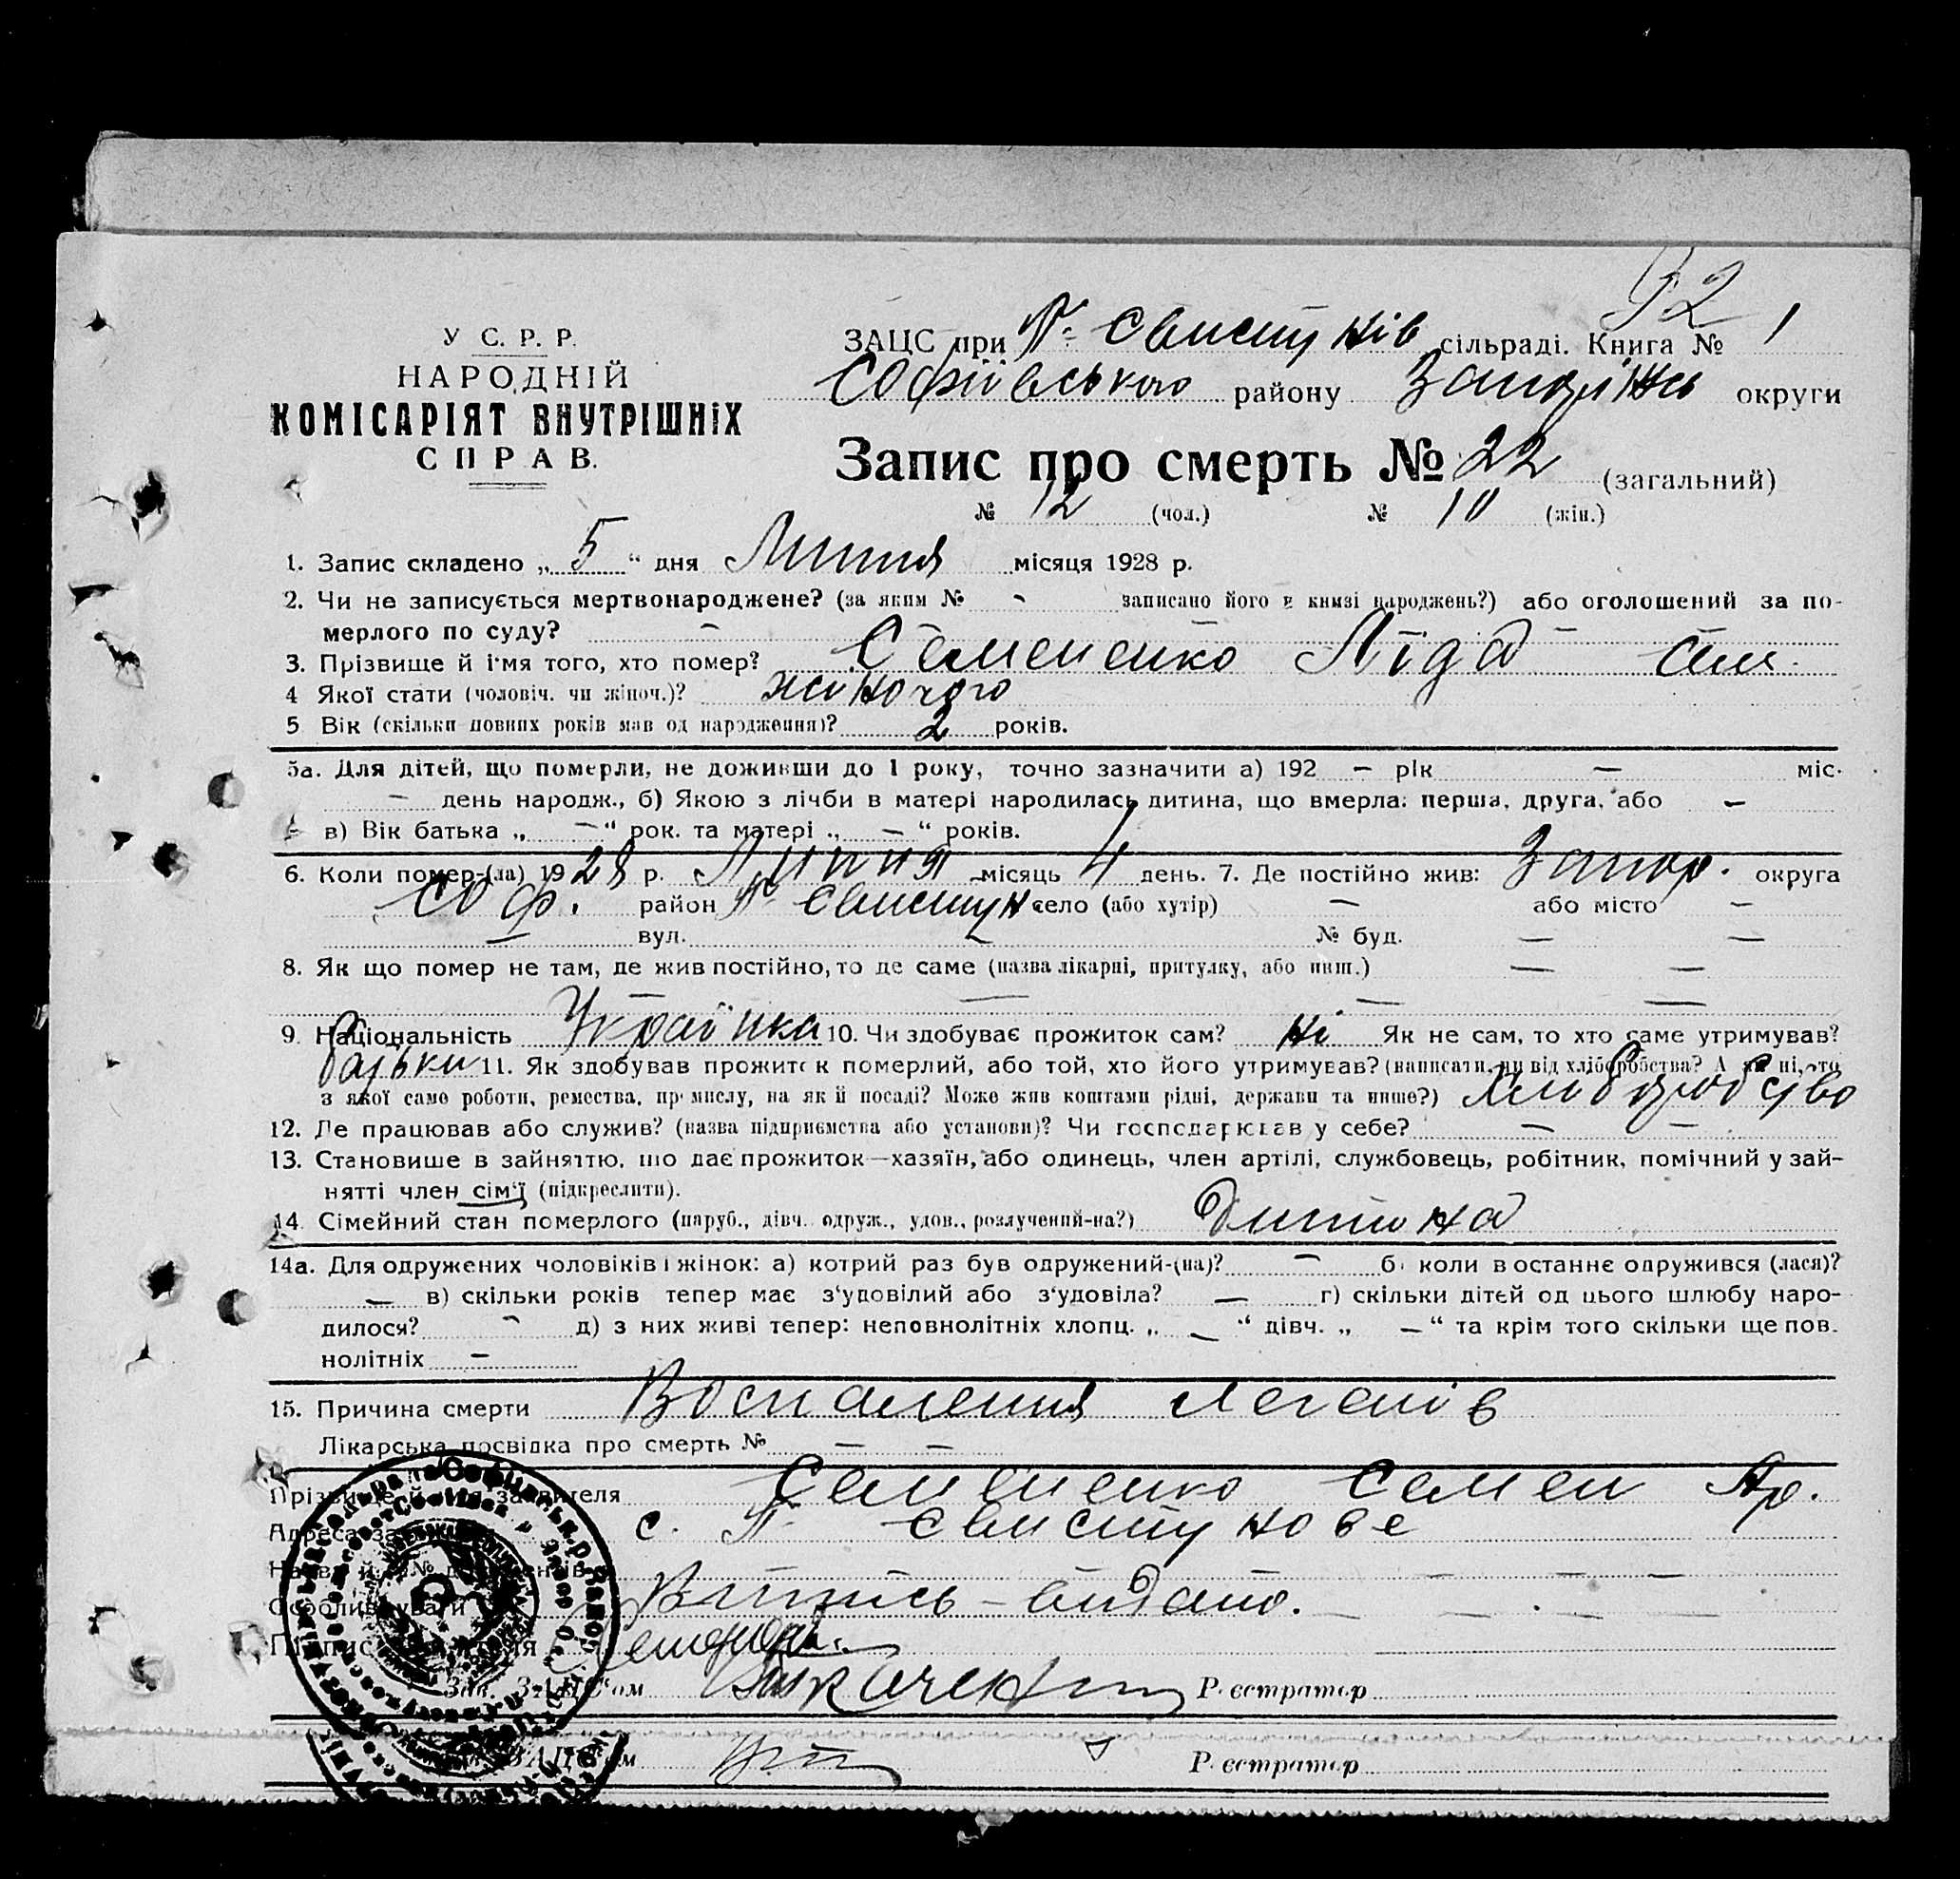 92
У С. Р. Р.
НАРОДНІЙ
КОМІСАРІЯТ ВНУТРІШНІХ
СПРАВ.
ЗАЦС при П- Свистунів сільраді. Книга № 1
Софіївського району Запоріжс округи
Запис про смерть № 22 (загальний)
№ 12 (чол.) № 10 (жін.)
1. Запис складено „ 5 “ дня Липня місяця 1928 р.
2. Чи не записується мертвонароджене? (за яким № - записано його в книзі народжень?) або оголошений за по-
мерлого по суду? —
3. Прізвище й ім'я того, хто помер? Семененко Ліда Сем.
4 Якої стати (чоловіч. чи жіноч.)? жиночого
5 Вік (скільки повних років мав од народження)? 2 років.
5а. Для дітей, що померли, не доживши до 1 року, точно зазначити а) 192 — рік — міс.
— день народж., б) Якою з лічби в матері народилась дитина, що вмерла: перша, друга, або —
в) Вік батька „ — “ рок. та матері „ — “ років.
6. Коли помер-(ла) 1928 р. Липня місяць 4 день. 7. Де постійно жив: Запор. округа
Соф. район П- Свистун село (або хутір) — або місто —
— вул. — № буд. — —
8. Як що помер не там, де жив постійно, то де саме (назва лікарні, притулку, або инш.) — —
— — —
9. Національність Українка 10. Чи здобував прожиток сам? ні Як не сам, то хто саме утримував?
батьки 11. Як здобував прожиток померлий, або той, хто його утримував? (написати, чи від хліборобства? А як ні, то
з якої саме роботи, ремества, промислу, на якій посаді? Може жив коштами рідні, держави та инше?) Хлиборобство
12. Де працював або служив? (назва підприємства або установи)? Чи господарював у себе? — —
13. Становище в зайняттю, що дає прожиток—хазяїн, або одинець, член артілі, службовець, робітник, помічний у зай-
нятті член сім'ї (підкреслити).
14. Сімейний стан померлого (паруб., дівч. одруж., удов., розлучений-на?) Дитина
14а. Для одружених чоловіків і жінок: а) котрий раз був одружений-(на)? — б) коли востаннє одружився (лася)?
— в) скільки років тепер має з'удовілий або з'удовіла? — г) скільки дітей од цього шлюбу наро-
дилося? - д) з них живі тепер: неповнолітніх хлопц. „ — “ дівч. „ — “ та крім того скільки ще пов.
нолітніх —
15. Причина смерти Воспалення легенів
Лікарська посвідка про смерть № — —
Прізвище й ім'я заявителя Семененко Семен Ар.
Адреса с. П- Свистунове
— — —
Витпись - видано. — — —
Зав. ЗАЦС'ом Реєстратор
ЗАЦС'ом Реєстратор